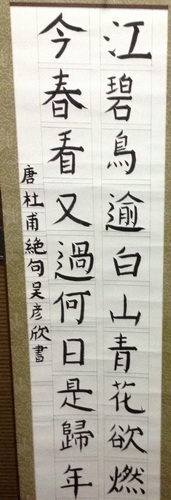 江碧鳥逾白山青花欲燃
今春看又過何日是歸年
唐杜甫絶句吴彥欣書